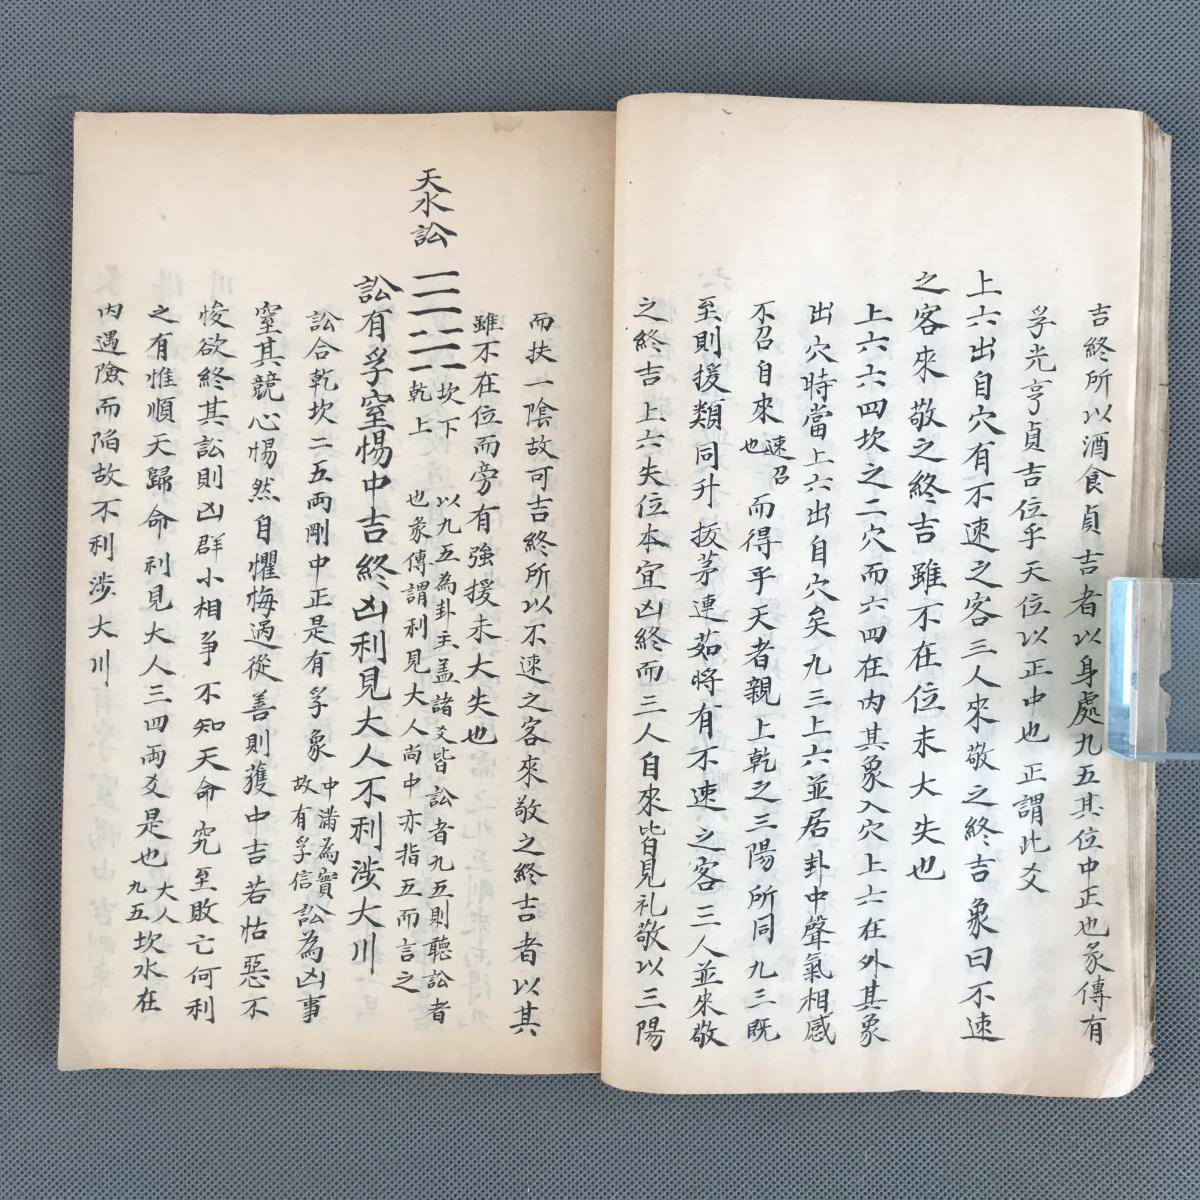 吉終所以酒食貞吉者以身處九五其位中正也彖傳有
孚光亨貞吉位乎天位以正中也正謂此爻
上六出自穴有不速之客三人來敬之終吉 象曰不速
之客來敬之終吉雖不在位未大失也
上六六四坎之二穴而六四在內其象入穴上六在外其象
出穴時當上六出自穴矣九三上六並居卦中聲氣相感
不召自來速召也而得乎天者親上乾之三陽所同九三既
至則援類同升拔茅連茹將有不速之客三人並來敬
之終吉上六失位本宜凶終而三人自來皆見礼敬以三陽
而扶一陰故可吉終所以不速之客來敬之終吉者以其
雖不在位而旁有強援未大失也
天水訟 坎下乾上 以九五為卦主蓋諸爻皆訟者九五則聽訟者也彖傳謂利見大人尚中亦指五而言之
訟有孚窒惕中吉終凶利見大人不利涉大川
訟合乾坎二五兩剛中正是有孚象中滿為實故有孚信訟為凶事
窒其競心惕然自懼悔過從善則獲中吉若怙惡不
悛欲終其訟則凶群小相爭不知天命究至敗亡何利
之有惟順天歸命利見大人三四兩爻是也大人九五坎水在
內遇險而陷故不利涉大川